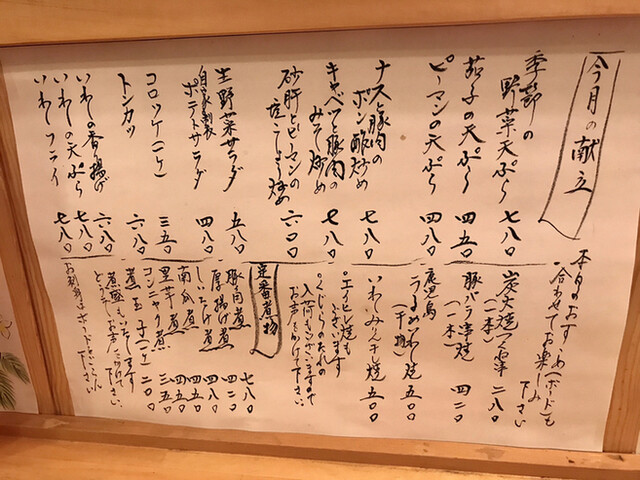 今月の献立
季節の
野菜天ぷら 七八〇
茄子の天ぷら 四五〇
ピーマンの天ぷら 四八〇
ナスと豚肉の
ポン酢炒め 七八〇
キャベツと豚肉の
みそ炒め 七八〇
砂肝とピーマンの
塩こしょう炒め 六〇〇
生野菜サラダ 五八〇
自家製
ポテトサラダ 四八〇
コロッケ(一ケ) 三五〇
トンカツ 六八〇
いわしの香り揚げ 六八〇
いわしの天ぷら 七八〇
いわしフライ 七八〇
本日のおすすめ(ボード)も
合わせてお楽しみ
下さい
炭火焼つくね串
(一本) 二八〇
豚バラ串焼
(一本) 四二〇
鹿児島
うるめいわし焼
(干物) 五〇〇
いわしみりん干し焼 五〇〇
○エイヒレ焼も
ございます
○くじらのたれの
入荷もございますので
お声かけ下さい。
定番煮物
豚肉煮 七八〇
厚揚げ煮 四二〇
しいたけ煮 四八〇
南瓜煮 四五〇
里芋煮 四五〇
コンニャク煮 三五〇
煮玉子(一ケ) 二〇〇
煮盛もいたします
とよってお声かけ下さい。
お刺身はボードをごらん下さい